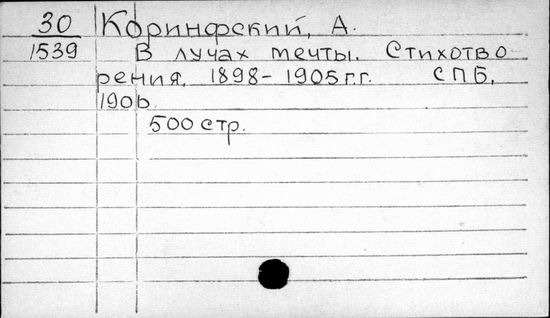 30 Коринфский, А.
1539 В лучах мечты. Стихотво
рения. 1898-1905 г.г. СПБ,
1906.
500 стр.